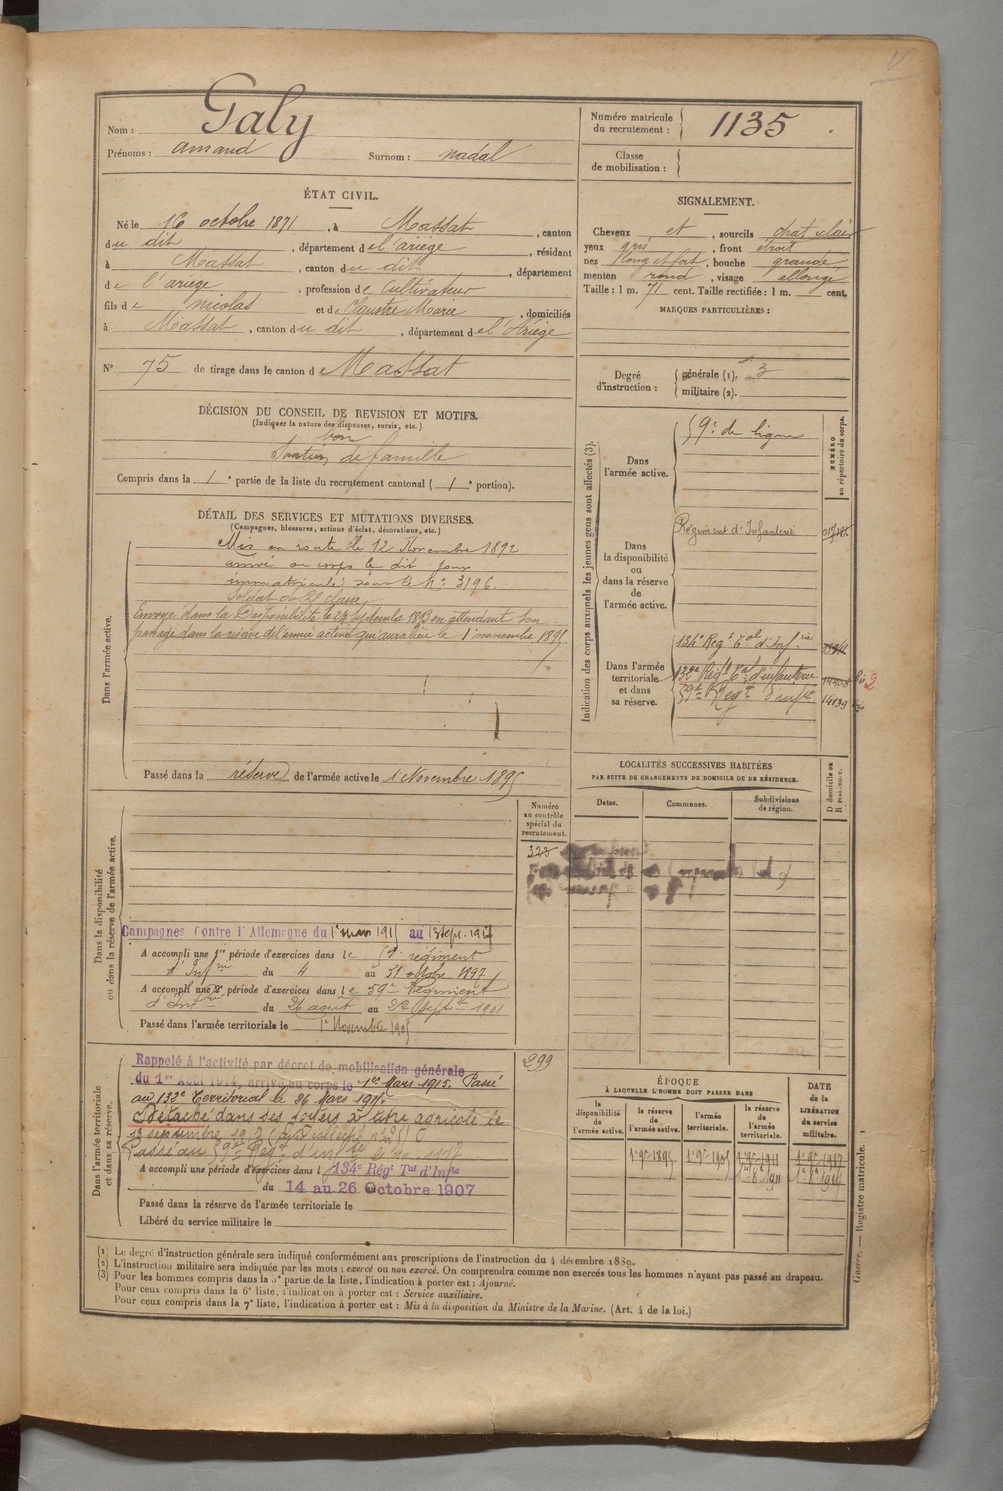 Nom : Galy
Prénoms : amand Surnom : nadal
Numéro matricule du recrutement : 1135
Classe de mobilisation :
ÉTAT CIVIL.
Né le 16 octobre 1871, à Massat, canton
du dit, département de l'ariège, résidant
à Massat, canton du dit, département
de l'ariège, profession de Cultivateur
fils de nicolas et de Claustre Marie, domiciliés
à Massat, canton du dit, département de l'Ariège
N° 75 de tirage dans le canton de Massat
SIGNALEMENT.
Cheveux et, sourcils chat clair
yeux gris, front étroit
nez long et fort, bouche grande
menton rond, visage allongé
Taille : 1 m. 71 cent. Taille rectifiée : 1 m. cent.
MARQUES PARTICULIÈRES :
Degré d'instruction : générale (1). 3
militaire (2).
DÉCISION DU CONSEIL DE REVISION ET MOTIFS.
(Indiquer la nature des dispenses, sursis, etc.)
bon
Soutien de famille
Compris dans la 1e partie de la liste du recrutement cantonal (1e portion).
DÉTAIL DES SERVICES ET MUTATIONS DIVERSES.
(Campagnes, blessures, actions d'éclat, décorations, etc.)
Dans l'armée active.
Mis en route le 12 Novembre 1892
arrivé au corps le dit jour
immatriculé sous le n° 3196.
Soldat de 2e classe
Envoyé dans la Disponibilité le 24 septembre 1893 en attendant son
passage dans la réserve de l'armée active qui aura lieu le 1 novembre 1895
Passé dans la réserve de l'armée active le 1 Novembre 1895
Indication des corps auxquels les jeunes gens sont affectés (3).
NUMÉRO au répertoire du corps.
Dans l'armée active. 59e de ligne
Dans la disponibilité ou dans la réserve de l'armée active.
Régiment d'Infanterie
Dans l'armée territoriale et dans sa réserve.
134e Regt Tal d'Infie
132e Regt Tal d'infanterie
59e Regt d'infie 14139
LOCALITÉS SUCCESSIVES HABITÉES
PAR SUITE DE CHANGEMENTS DE DOMICILE OU DE RÉSIDENCE.
Dates. Communes. Subdivisions de région. D domicile ou R résidence.
Numéro au contrôle spécial du recrutement.
323
Dans la disponibilité ou dans la réserve de l'armée active.
Campagnes Contre l'Allemagne du 1er mars 1915 au 13 sept. 1917
A accompli une 1re période d'exercices dans le 59e régiment
d'Infie du 4 au 31 octobre 1897
A accompli une 2e période d'exercices dans le 59e Régiment
d'Infie du 26 août au 22 Septbre 1901
Passé dans l'armée territoriale le 1er Novembre 1905
299
Dans l'armée territoriale et dans sa réserve.
Rappelé à l'activité par décret de mobilisation générale
du 1er Août 1914, arrivé au corps le 1er Mars 1915. Passé
au 132e Territorial le 26 Mars 1915
Détaché dans ses foyers à titre agricole le
13 septembre 1917
Passé au 59e Regt d'infie
A accompli une période d'exercices dans l 134e Régt Tal d'Infie
du 14 au 26 Octobre 1907
Passé dans la réserve de l'armée territoriale le
Libéré du service militaire le
ÉPOQUE
À LAQUELLE L'HOMME DOIT PASSER DANS
la disponibilité de l'armée active. la réserve de l'armée active. l'armée territoriale. la réserve de l'armée territoriale.
DATE de la LIBÉRATION du service militaire.
1er 9bre 1895 1er 9bre 1905 1er 9bre 1911 1er 9bre 1917
(1) Le degré d'instruction générale sera indiqué conformément aux prescriptions de l'instruction du 4 décembre 1889.
(2) L'instruction militaire sera indiquée par les mots : exercé ou non exercé. On comprendra comme non exercés tous les hommes n'ayant pas passé au drapeau.
(3) Pour les hommes compris dans la 5e partie de la liste, l'indication à porter est : Ajourné.
Pour ceux compris dans la 6e liste, l'indication à porter est : Service auxiliaire.
Pour ceux compris dans la 7e liste, l'indication à porter est : Mis à la disposition du Ministre de la Marine. (Art. 4 de la loi.)
Guerre. — Registre matricule. 1